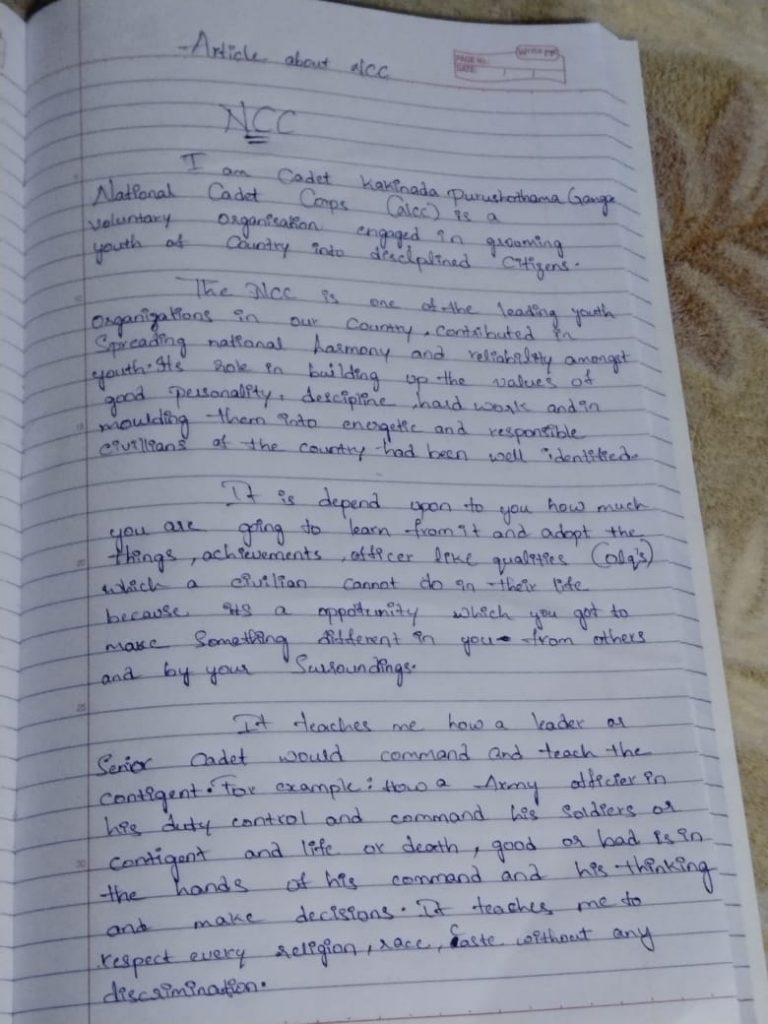 - Article about NCC
PAGE No.
DATE
NCC
I am Cadet Kakinada Purushothama Ganga
National Cadet Corps (NCC) is a
voluntary organisation engaged in grooming
youth of Country into desclplined Citizens.
The NCC is one of the leading youth
Organizations in our Country, contributed in
Spreading national harmony and reliability amongst
youth. Its role in building up the values of
good personality, descipline, hard work and in
moulding them into energetic and responsible
civillians of the country had been well identified.
It is depend upon to you how much
you are going to learn from it and adopt the
things, achievements, officer like qualities (olq's)
which a civilian cannot do in their life
because its a oppotunity which you got to
make Something different in you from others
and by your Surroundings.
It teaches me how a leader or
Senior Cadet would command and teach the
contigent. For example: How a Army officier in
his duty control and command his soldiers or
contigent and life or death, good or bad is in
the hands of his command and his thinking
and make decisions. It teaches me to
respect every religion, race, Caste without any
discrimination.